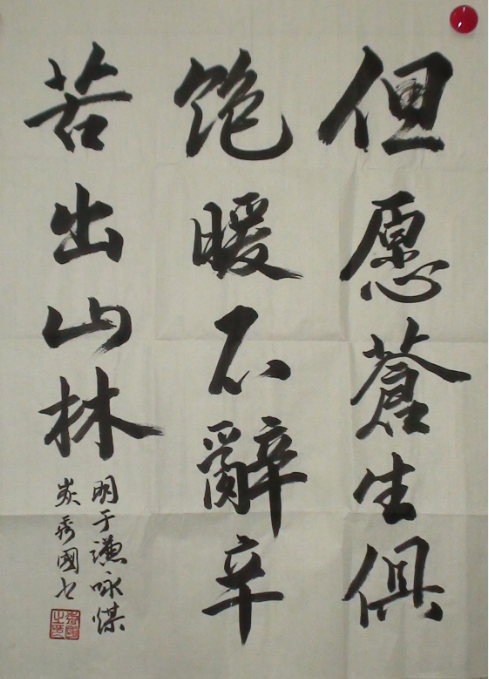 但愿蒼生俱
饱暖不辭辛
苦出山林
明于謙咏煤
炭秀國书